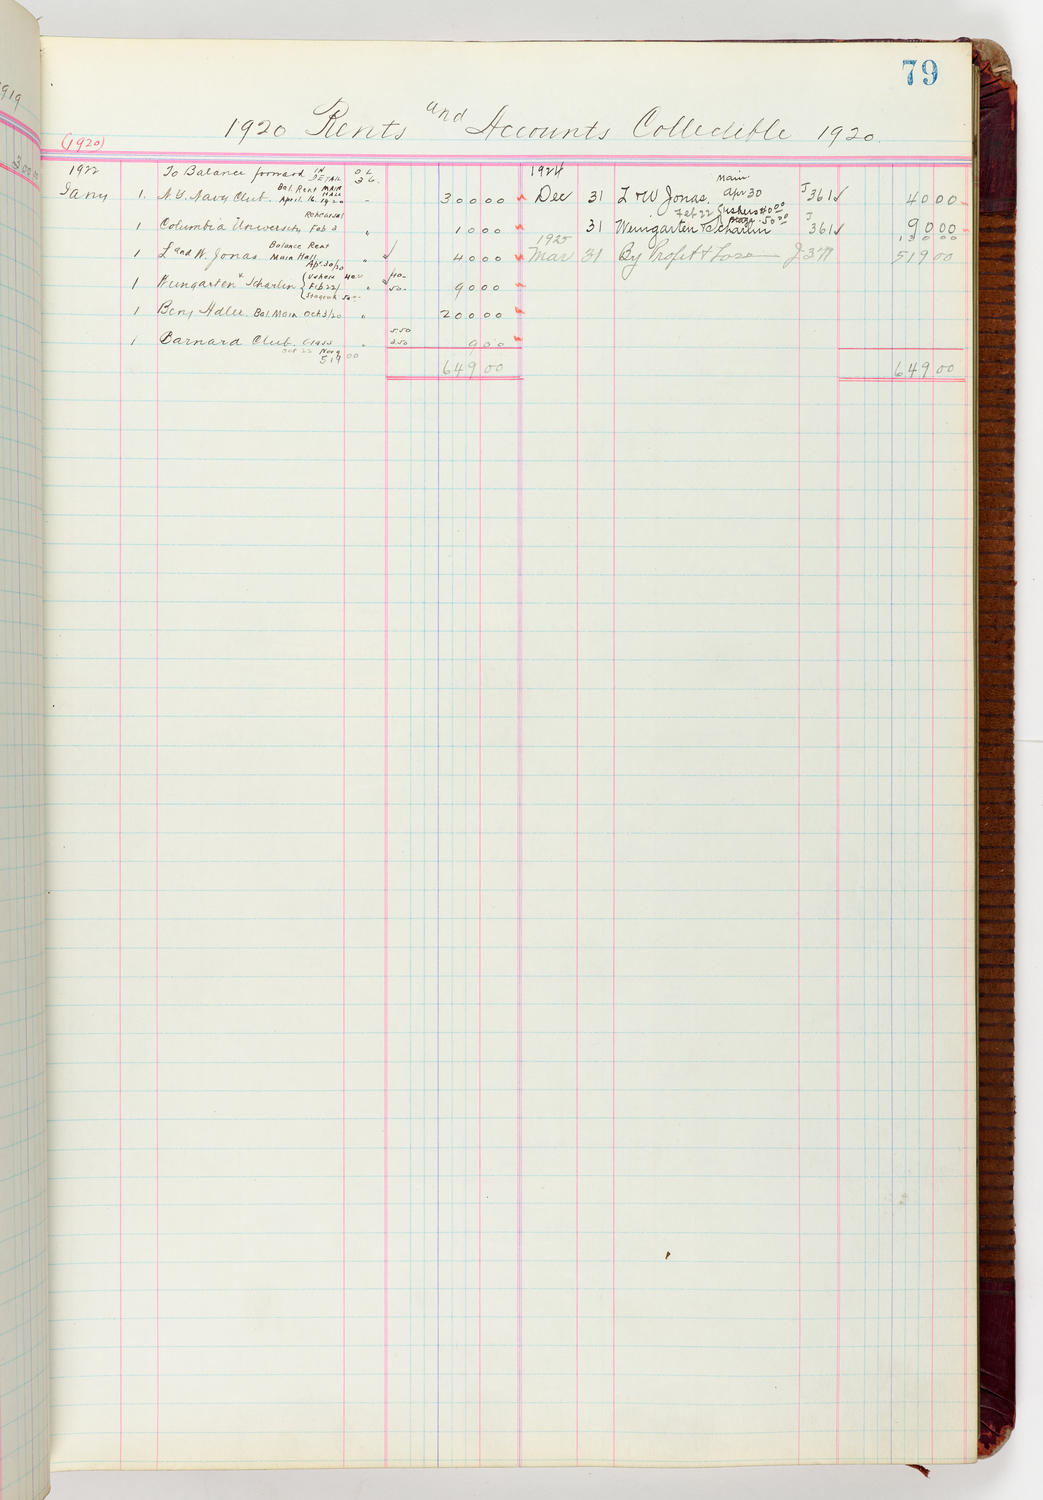 79
1919
300 00
1920 Rents and Accounts Collectible 1920.
(1920)
1922 To Balance forward IN DETAIL O.L. 36.
Jany 1. N.Y. Navy Club. Bal. Rent MAIN HALL April. 16. 1920 300 00
1 Columbia University Rehearsal Feb 3 " 10 00
1 L and W. Jonas. Balance Rent Main Hall Apr. 30/20 " ✓ 40 00
1 Weingarten & Scharlin { Ushers 40.00 Feb 22/ Stagewk 50.— " 40- 50.- 90 00
1 Benj Adler. Bal Main Oct 3/20 " 200 00
1 Barnard Club. Glass Oct 22 Nov 9 " 5.50 3.50 9 00
519 00
649 00
1924
Dec 31 L & W Jonas. Main Apr 30 J 361 ✓ 40 00
31 Weingarten & Scharlin Feb 22 { Ushers 40 00 50 00 J 361 ✓ 90 00
130 00
1925
Mar 31 By Profit & Loss J 377 519 00
649 00